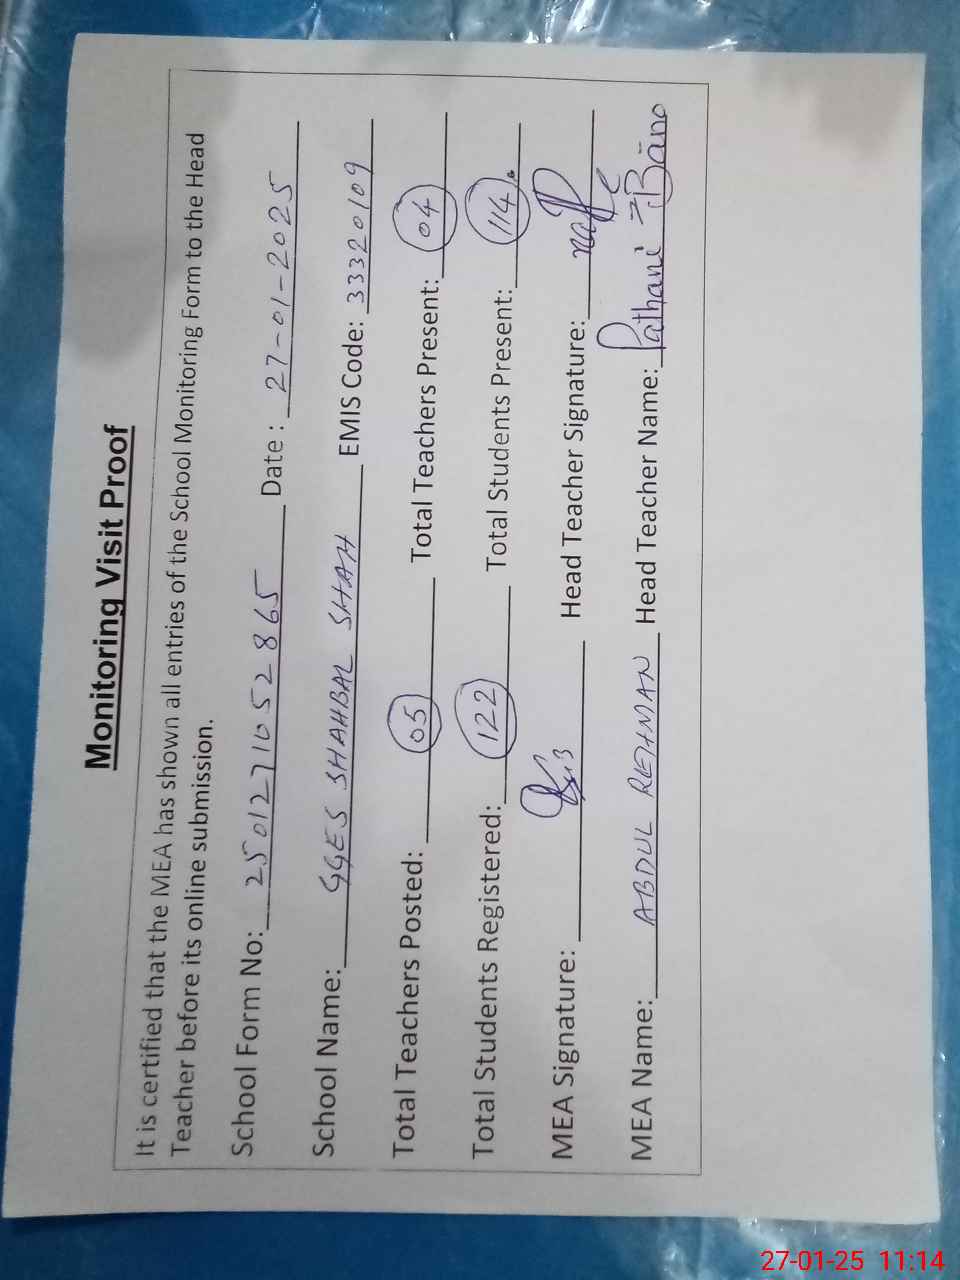 Monitoring Visit Proof
It is certified that the MEA has shown all entries of the School Monitoring Form to the Head
Teacher before its online submission.
School Form No: 2501271052865 Date : 27-01-2025
School Name: GGES SHAHBAL SHAH EMIS Code: 33320109
Total Teachers Posted: 05 Total Teachers Present: 04
Total Students Registered: 122 Total Students Present: 114
MEA Signature: Head Teacher Signature:
MEA Name: ABDUL REHMAN Head Teacher Name: Pathani Bano
27-01-25 11:14